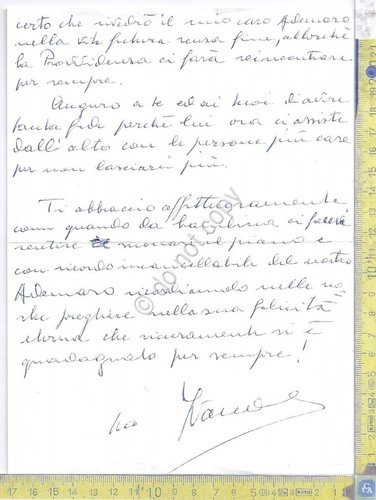 certo che rivedrò il mio caro Ademaro
nella vita futura senza fine, allorché
la Provvidenza ci farà reincontrare
per sempre.
Auguro a te ed ai tuoi di avere
tanta fede perché lui ora ci assiste
dall'alto con le persone più care
per non lasciarci più.
Ti abbraccio affettuosamente
come quando da bambina ci facevi
sentire suonare il piano e
con ricordo incancellabile del nostro
Ademaro ricordiamolo nelle no-
stre preghiere nella sua felicità
eterna che sicuramente si è
guadagnato per sempre!
do not copy